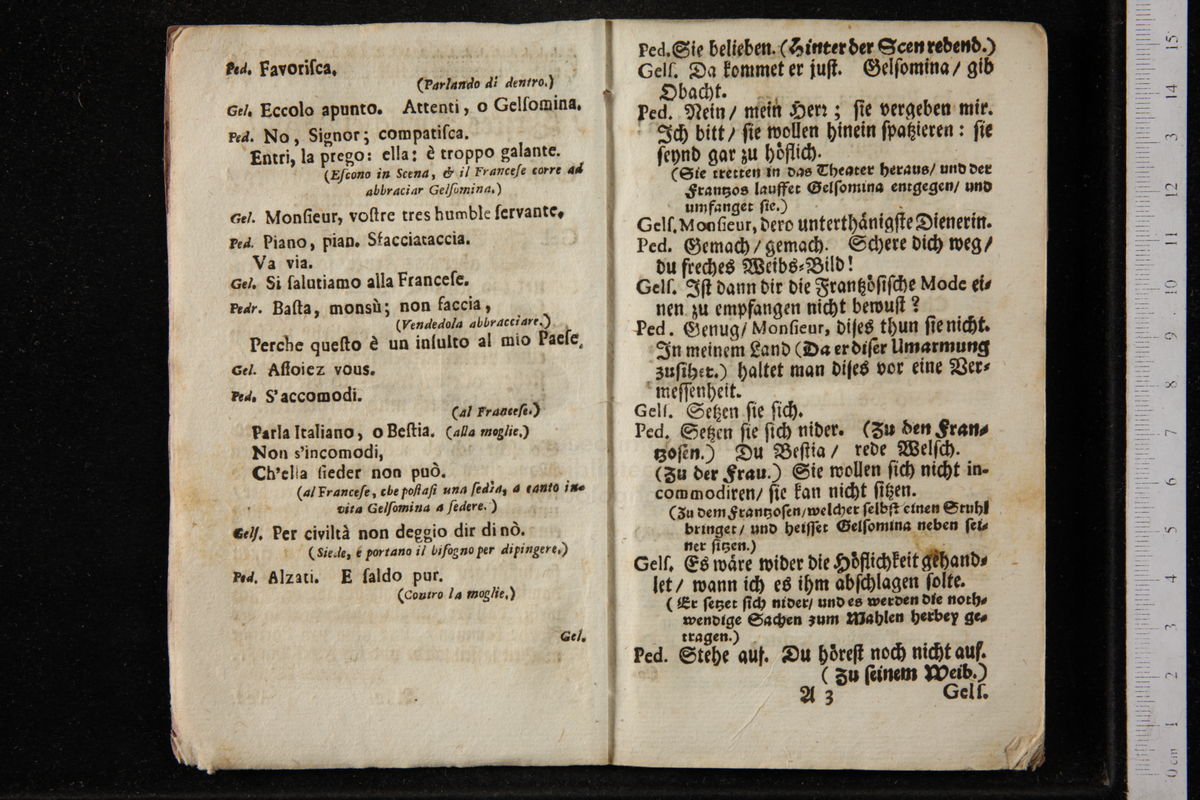 Ped. Favoriſca.
(Parlando di dentro.)
Gel. Eccolo apunto. Attenti, o Gelſomina.
Ped. No, Signor; compatiſca.
Entri, la prego: ella: è troppo galante.
(Eſcono in Scena, & il Franceſe corre ad
abbraciar Gelſomina.)
Gel. Monſieur, voſtre tres humble ſervante.
Ped. Piano, pian. Sfacciataccia.
Va via.
Gel. Si ſalutiamo alla Franceſe.
Pedr. Baſta, monsù; non faccia,
(Vendedola abbracciare.)
Perche queſto è un inſulto al mio Paeſe.
Gel. Aſſoiez vous.
Ped. S'accomodi.
(al Franceſe.)
Parla Italiano, o Beſtia. (alla moglie.)
Non s'incomodi,
Ch'ella ſieder non può.
(al Franceſe, che poſtaſi una ſedia, a canto in-
vita Gelſomina a ſedere.)
Gelſ. Per civiltà non deggio dir di nò.
(Siede, è portano il biſogno per dipingere.)
Ped. Alzati. E ſaldo pur.
(Contro la moglie.)
Gel.
Ped. Sie belieben. (Hinter der Scen redend.)
Gelſ. Da kommet er juſt. Gelſomina/ gib
Obacht.
Ped. Nein/ mein Herꝛ; ſie vergeben mir.
Ich bitt/ ſie wollen hinein ſpatzieren: ſie
ſeynd gar zu höflich.
(Sie tretten in das Theater heraus/ und der
Frantzos lauffet Gelſomina entgegen/ und
umfanget ſie.)
Gelſ. Monſieur, dero unterthänigſte Dienerin.
Ped. Gemach/ gemach. Schere dich weg/
du freches Weibs-Bild!
Gelſ. Iſt dann dir die Frantzöſiſche Mode ei-
nen zu empfangen nicht bewuſt?
Ped. Genug/ Monſieur, diſes thun ſie nicht.
In meinem Land (Da er diſer Umarmung
zuſihet.) haltet man diſes vor eine Ver-
meſſenheit.
Gelſ. Setzen ſie ſich.
Ped. Setzen ſie ſich nider. (Zu den Fran-
tzoſen.) Du Beſtia/ rede Welſch.
(Zu der Frau.) Sie wollen ſich nicht in-
commodiren/ ſie kan nicht ſitzen.
(Zu dem Frantzoſen/ welcher ſelbſt einen Stuhl
bringet/ und heiſſet Gelſomina neben ſei-
ner ſitzen.)
Gelſ. Es wäre wider die Höflichkeit gehand-
let/ wann ich es ihm abſchlagen ſolte.
(Er ſetzet ſich nider/ und es werden die noth-
wendige Sachen zum Mahlen herbey ge-
tragen.)
Ped. Stehe auf. Du höreſt noch nicht auf.
(Zu ſeinem Weib.)
A 3 Gelſ.
0 cm 1 2 3 4 5 6 7 8 9 10 11 12 13 14 15